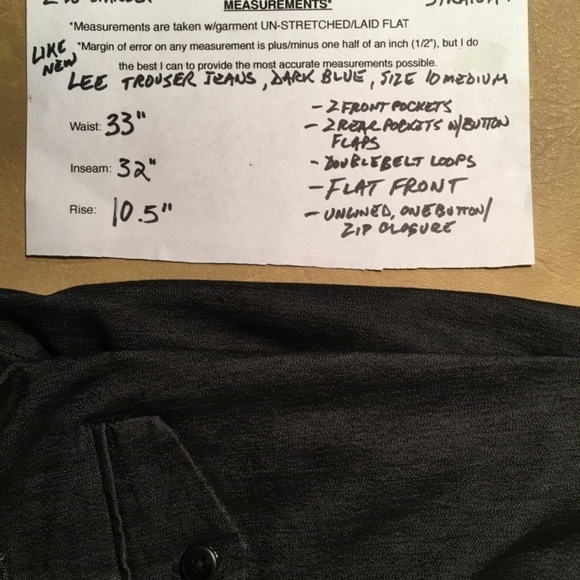 MEASUREMENTS*
*Measurements are taken w/garment UN-STRETCHED/LAID FLAT
*Margin of error on any measurement is plus/minus one half of an inch (1/2"), but I do
the best I can to provide the most accurate measurements possible.
LIKE
NEW
LEE TROUSER JEANS, DARK BLUE, SIZE 10 MEDIUM
Waist: 33"
Inseam: 32"
Rise: 10.5"
- 2 FRONT POCKETS
- 2 REAR POCKETS W/BUTTON
FLAPS
- DOUBLE BELT LOOPS
- FLAT FRONT
- UNLINED, ONE BUTTON/
ZIP CLOSURE